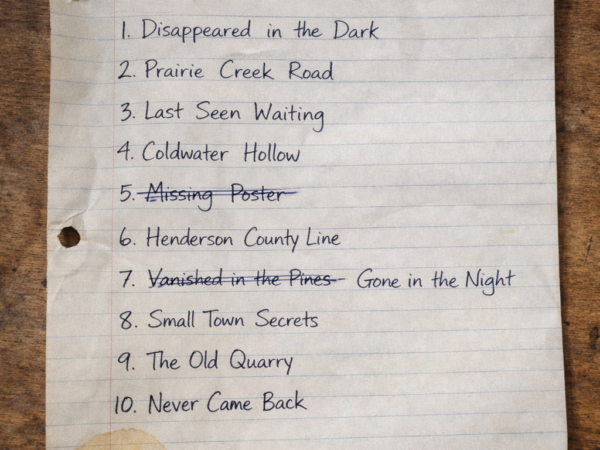 1. Disappeared in the Dark
2. Prairie Creek Road
3. Last Seen Waiting
4. Coldwater Hollow
5. Missing Poster
6. Henderson County Line
7. Vanished in the Pines Gone in the Night
8. Small Town Secrets
9. The Old Quarry
10. Never Came Back